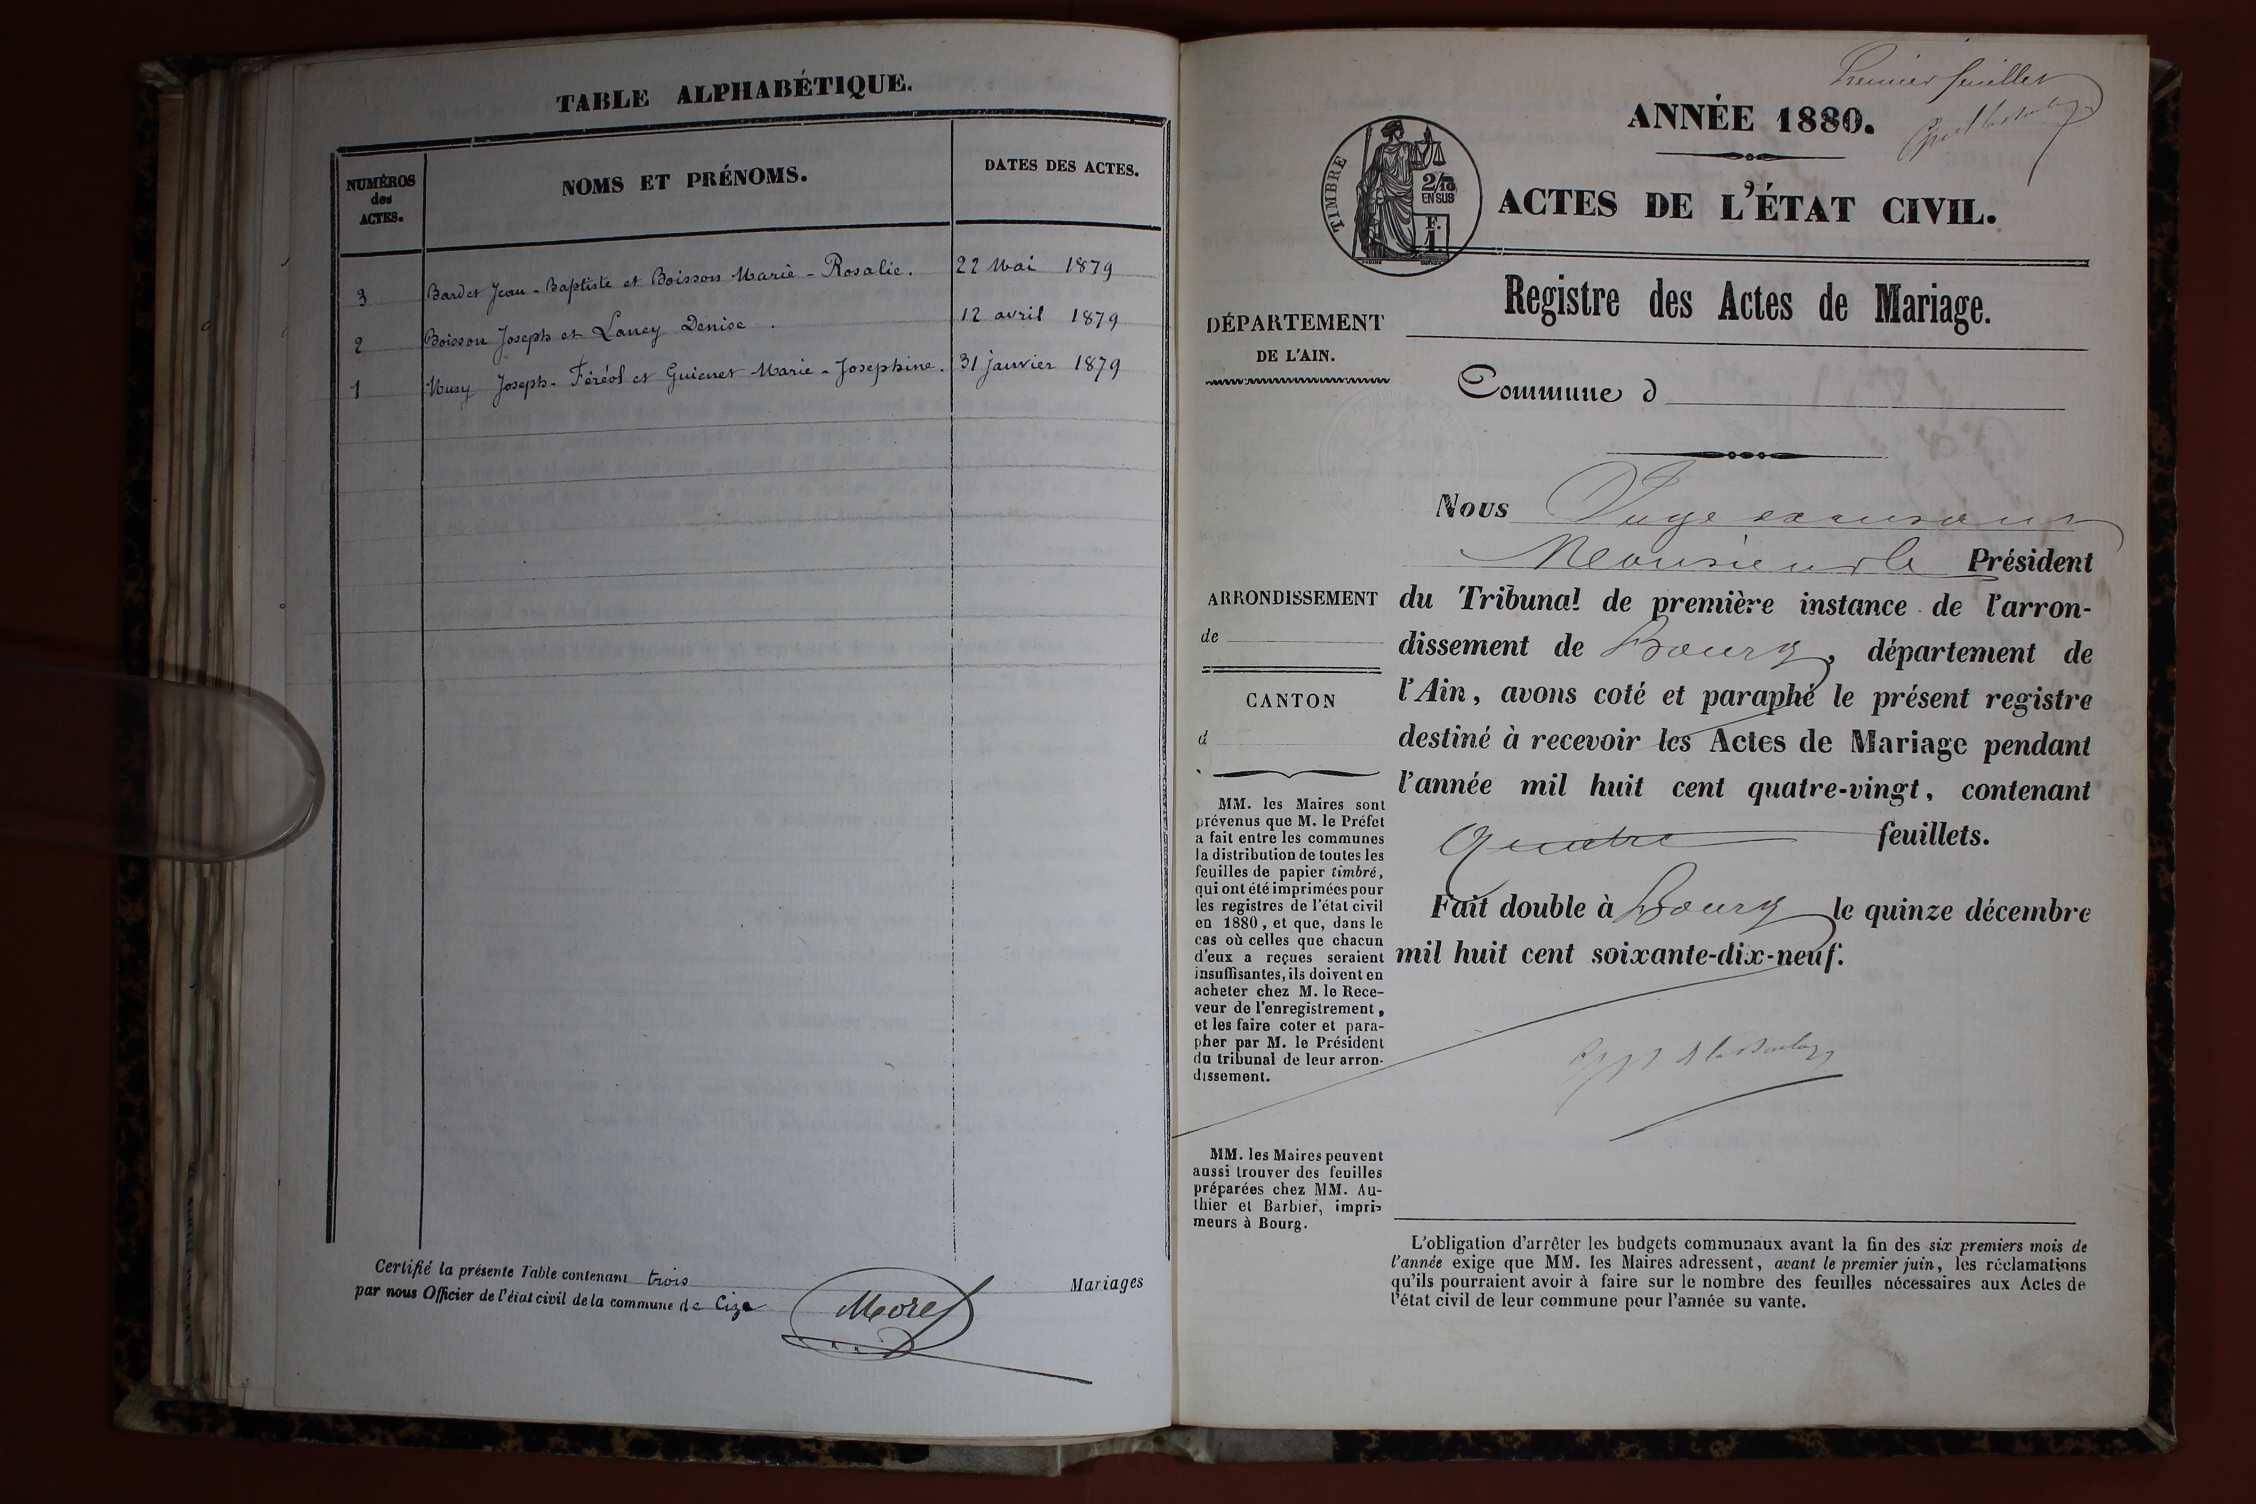 TABLE ALPHABÉTIQUE.
NUMÉROS
des
ACTES.
NOMS ET PRÉNOMS.
DATES DES ACTES.
3 Bardet Jean-Baptiste et Boisson Marie-Rosalie. 22 Mai 1879
2 Boisson Joseph et Lancy Denise. 12 avril 1879
1 Musy Joseph-Féréol et Guienet Marie-Josephine. 31 janvier 1879
Certifié la présente Table contenant trois Mariages
par nous Officier de l'état civil de la commune de Cize
Morel
Premier feuillet
ANNÉE 1880.
TIMBRE
2/10
EN SUS
F.
1.
ACTES DE L'ÉTAT CIVIL.
Registre des Actes de Mariage.
DÉPARTEMENT
DE L'AIN.
Commune d
Nous Juge
Monsieur le Président
du Tribunal de première instance de l'arron-
dissement de Bourg, département de
l'Ain, avons coté et paraphé le présent registre
destiné à recevoir les Actes de Mariage pendant
l'année mil huit cent quatre-vingt, contenant
Quatre feuillets.
Fait double à Bourg le quinze décembre
mil huit cent soixante-dix-neuf.
ARRONDISSEMENT
de
CANTON
d
MM. les Maires sont
prévenus que M. le Préfet
a fait entre les communes
la distribution de toutes les
feuilles de papier timbré,
qui ont été imprimées pour
les registres de l'état civil
en 1880, et que, dans le
cas où celles que chacun
d'eux a reçues seraient
insuffisantes, ils doivent en
acheter chez M. le Rece-
veur de l'enregistrement,
et les faire coter et para-
pher par M. le Président
du tribunal de leur arron-
dissement.
MM. les Maires peuvent
aussi trouver des feuilles
préparées chez MM. Au-
thier et Barbier, impri-
meurs à Bourg.
L'obligation d'arrêter les budgets communaux avant la fin des six premiers mois de
l'année exige que MM. les Maires adressent, avant le premier juin, les réclamations
qu'ils pourraient avoir à faire sur le nombre des feuilles nécessaires aux Actes de
l'état civil de leur commune pour l'année su vante.